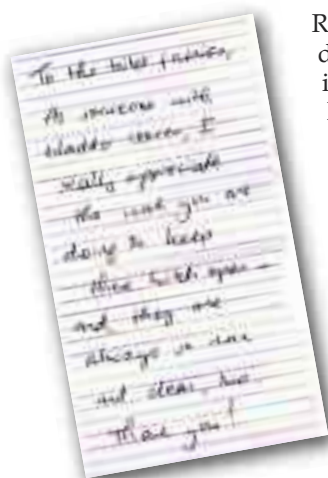 To the toilet fairies,
As someone with
bladder cancer, I
really appreciate
the work you are
doing to keep
open –
and they are
always so
and clean, too.
Thank you!
R
d
i